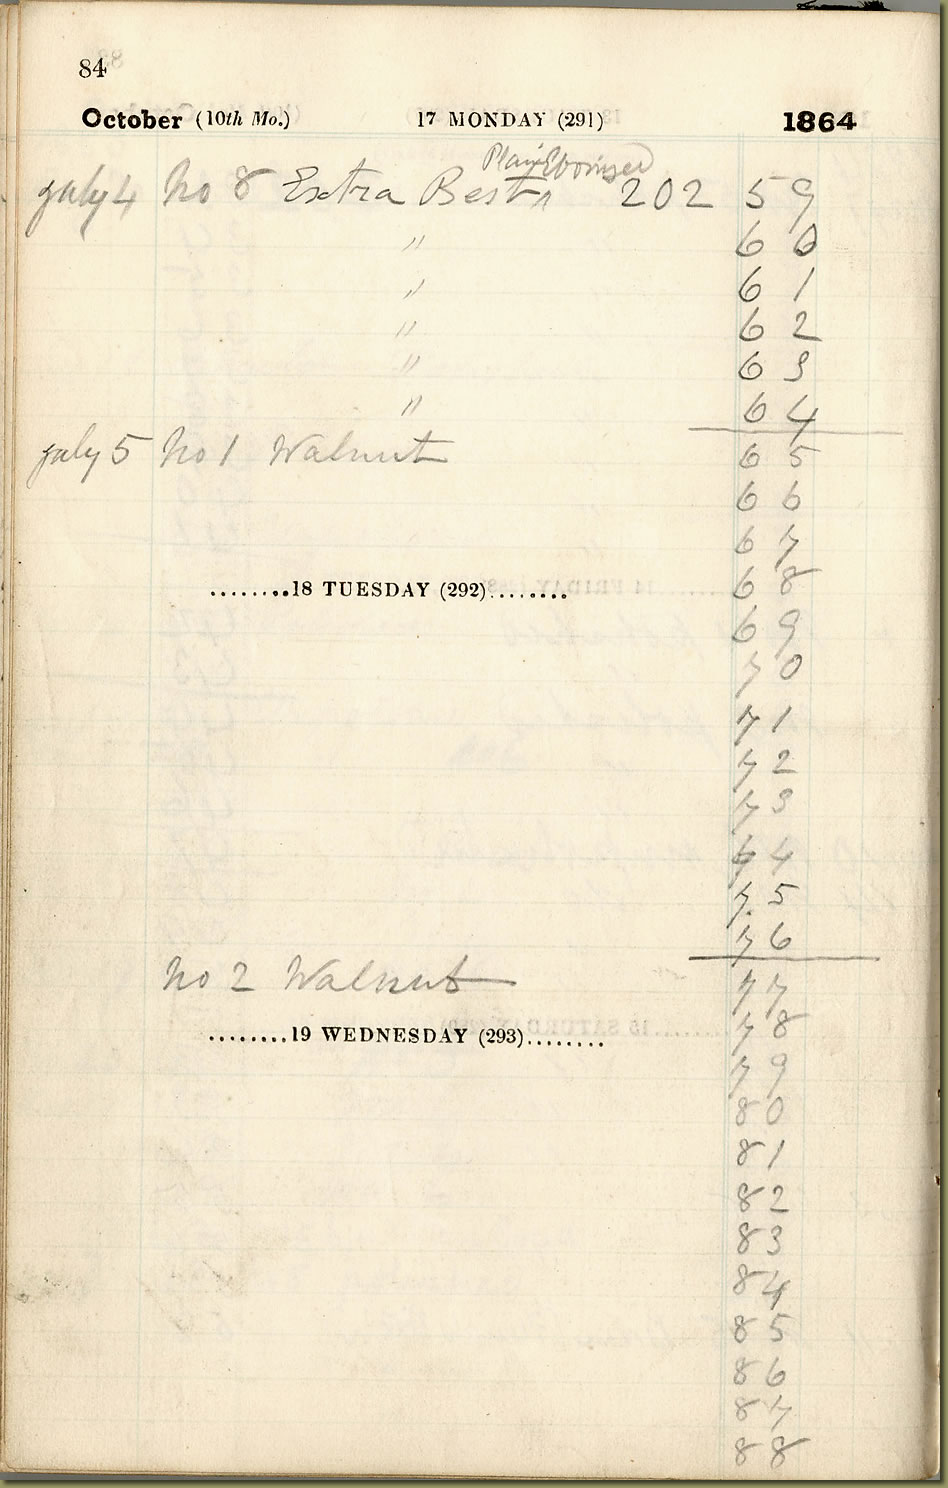 84
October (10th Mo.) 17 MONDAY (291) 1864
Plain Ebonised
July 4 No 8 Extra Bests 202 59
" 60
" 61
" 62
" 63
" 64
July 5 No 1 Walnut 65
66
67
........18 TUESDAY (292)........ 68
69
70
71
72
73
74
75
76
No 2 Walnut 77
........19 WEDNESDAY (293)........ 78
79
80
81
82
83
84
85
86
87
88